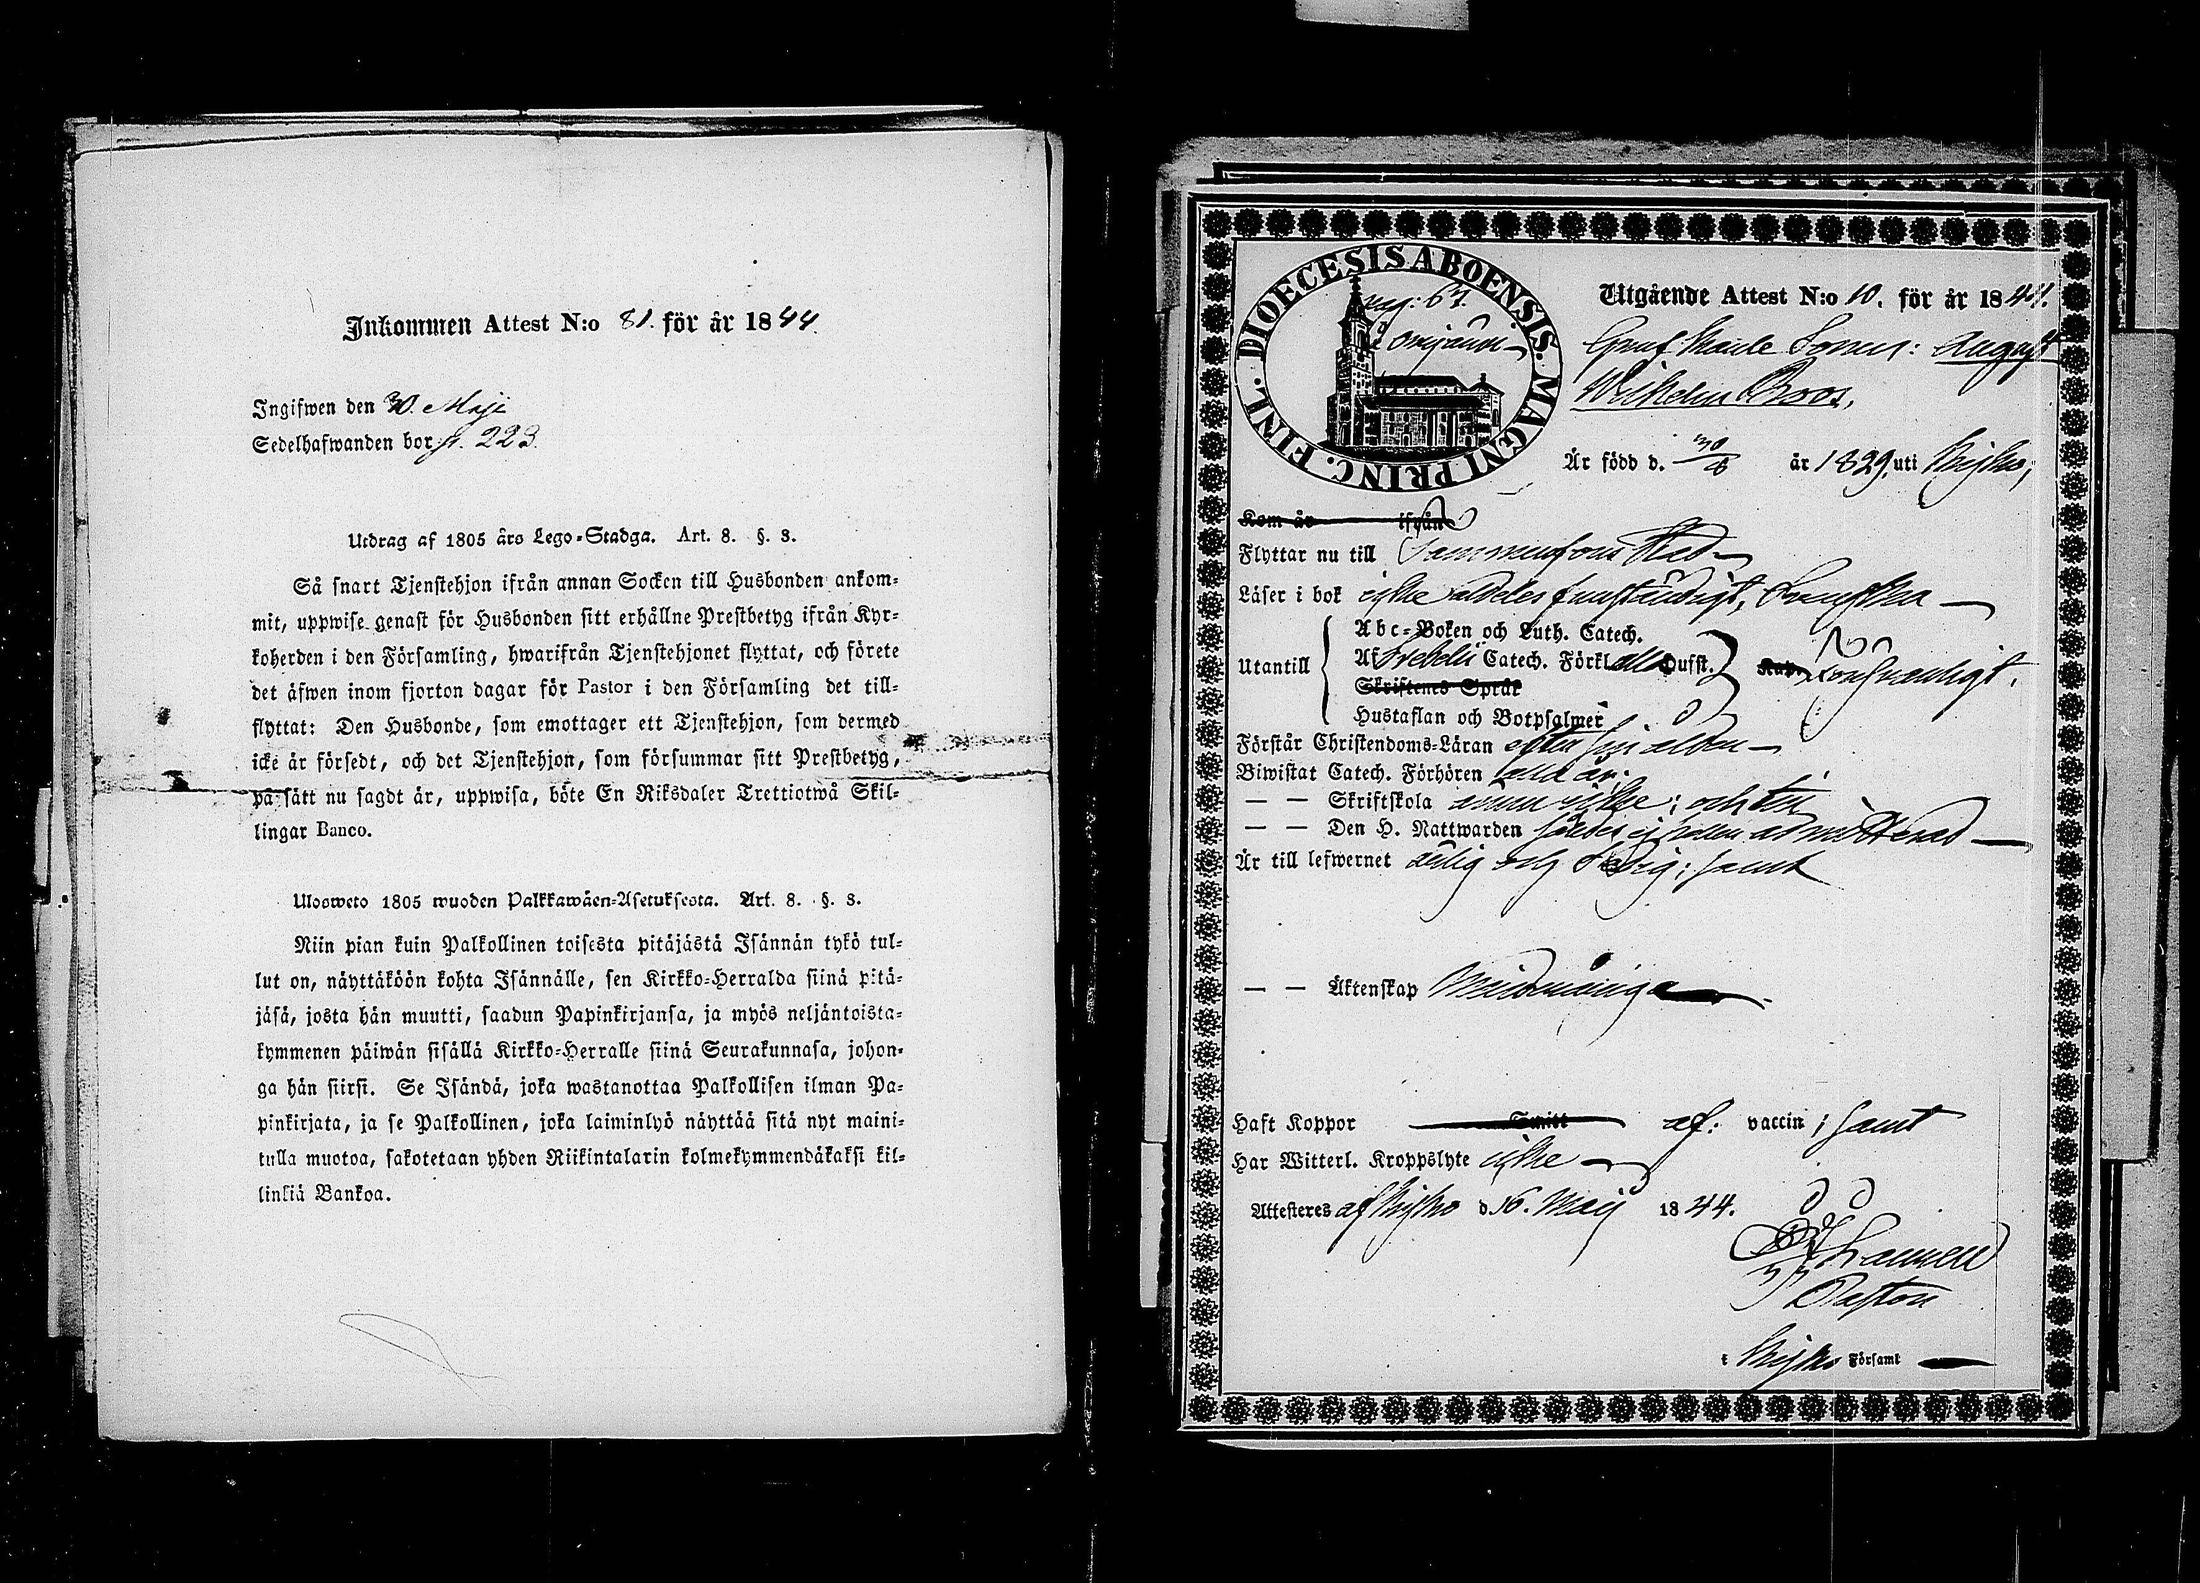 Inkommen Attest N:o 81. för år 1844.
Ingifwen den 30. Maji
Sedelhafwanden bor 223.
Utdrag af 1805 års Lego-Stadga. Art. 8. §. 3.
Så snart Tjenstehjon ifrån annan Socken till Husbonden ankom-
mit, uppwise genast för Husbonden sitt erhållne Prestbetyg ifrån Kyr-
koherden i den Församling, hwarifrån Tjenstehjonet flyttat, och förete
det äfwen inom fjorton dagar för Pastor i den Församling det till-
flyttat: Den Husbonde, som emottager ett Tjenstehjon, som dermed
icke är försedt, och det Tjenstehjon, som försummar sitt Prestbetyg,
på sätt nu sagdt är, uppwisa, böte En Riksdaler Trettiotwå Skil-
lingar Banco.
Ulosweto 1805 wuoden Palkkawäen-Asetuksesta. Art. 8. §. 3.
Niin pian kuin Palkollinen toisesta pitäjästä Isännän tykö tul-
lut on, näyttäköön kohta Isännälle, sen Kirkko-Herralda siinä pitä-
jäsä, josta hän muutti, saadun Papinkirjansa, ja myös neljäntoista-
kymmenen päiwän sisällä Kirkko-Herralle siinä Seurakunnasa, johon-
ga hän siirsi. Se Isändä, joka wastanottaa Palkollisen ilman Pa-
pinkirjata, ja se Palkollinen, joka laiminlyö näyttää sitä nyt maini-
tulla muotoa, sakotetaan yhden Riikintalarin kolmekymmendäkaksi kil-
linkiä Bankoa.
DIOECESIS ABOENSIS. MAGNI PRINC. FINL.
pag: 67.
Utgående Attest N:o 10. för år 1844.
August
Wilhelm Roos,
Är född d. 30/8 år 1829. uti Kisko,
Kom år ifrån
Flyttar nu till Stad
Läser i bok icke aldeles Swenska
Utantill
Abc-Boken och Luth. Catech.
Af Svebelii Catech. Förkl. alla Hufst.
Skriftenes Språk
Hustaflan och Botpsalmer
Förstår Christendoms-Läran efter sin ålder
Biwistat Catech. Förhören alla år.
— — Skriftskola ännu icke; och till
— — Den H. Nattwarden således ej heller admitterad
Är till lefwernet ärlig och sedig; samt
— — Äktenskap Minderårig
Haft Koppor Smitt af: vaccin; samt
Har Witterl. Kroppslyte icke
Attesteres af Kisko d. 16. Maij 1844.
Pastor
i Kisko Församl